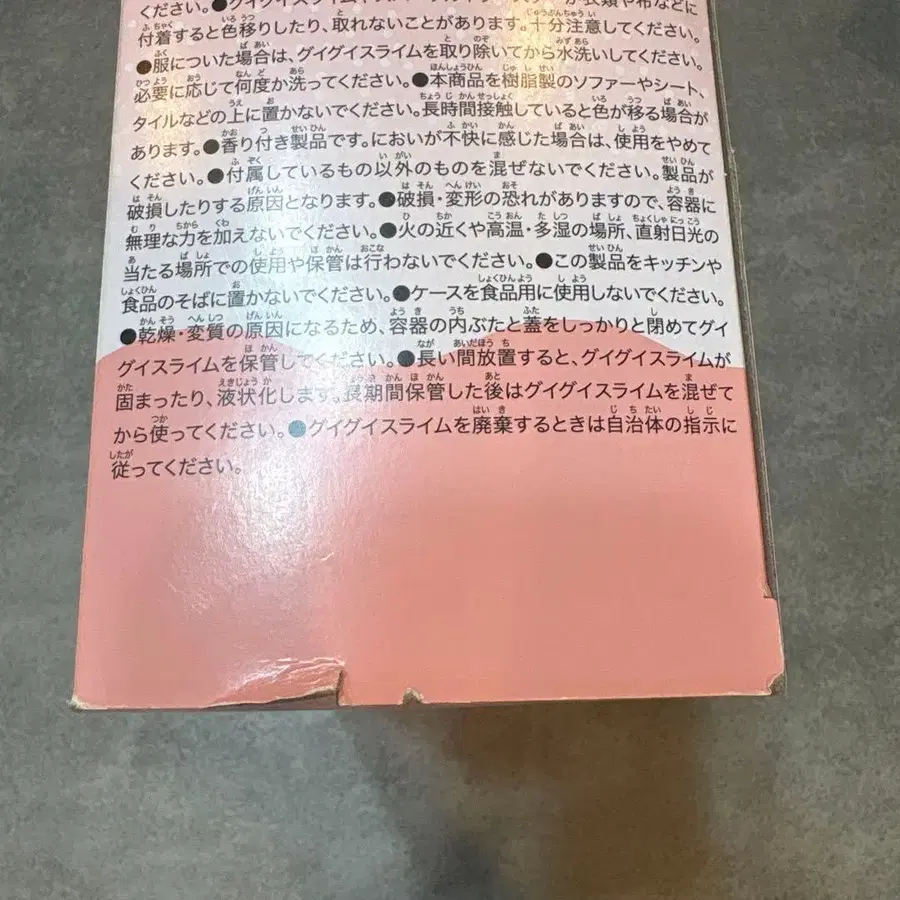 ください。●グイグイスライム
付着すると色移りしたり、取れないことがあります。十分注意してください。
●服についた場合は、グイグイスライムを取り除いてから水洗いしてください。
必要に応じて何度か洗ってください。●本商品を樹脂製のソファーやシート、
タイルなどの上に置かないでください。長時間接触していると色が移る場合が
あります。●香り付き製品です。においが不快に感じた場合は、使用をやめて
ください。●付属しているもの以外のものを混ぜないでください。製品が
破損したりする原因となります。●破損・変形の恐れがありますので、容器に
無理な力を加えないでください。●火の近くや高温・多湿の場所、直射日光の
当たる場所での使用や保管は行わないでください。●この製品をキッチンや
食品のそばに置かないでください。●ケースを食品用に使用しないでください。
●乾燥・変質の原因になるため、容器の内ぶたと蓋をしっかりと閉めてグイ
グイスライムを保管してください。●長い間放置すると、グイグイスライムが
固まったり、液状化します。長期間保管した後はグイグイスライムを混ぜて
から使ってください。●グイグイスライムを廃棄するときは自治体の指示に
従ってください。